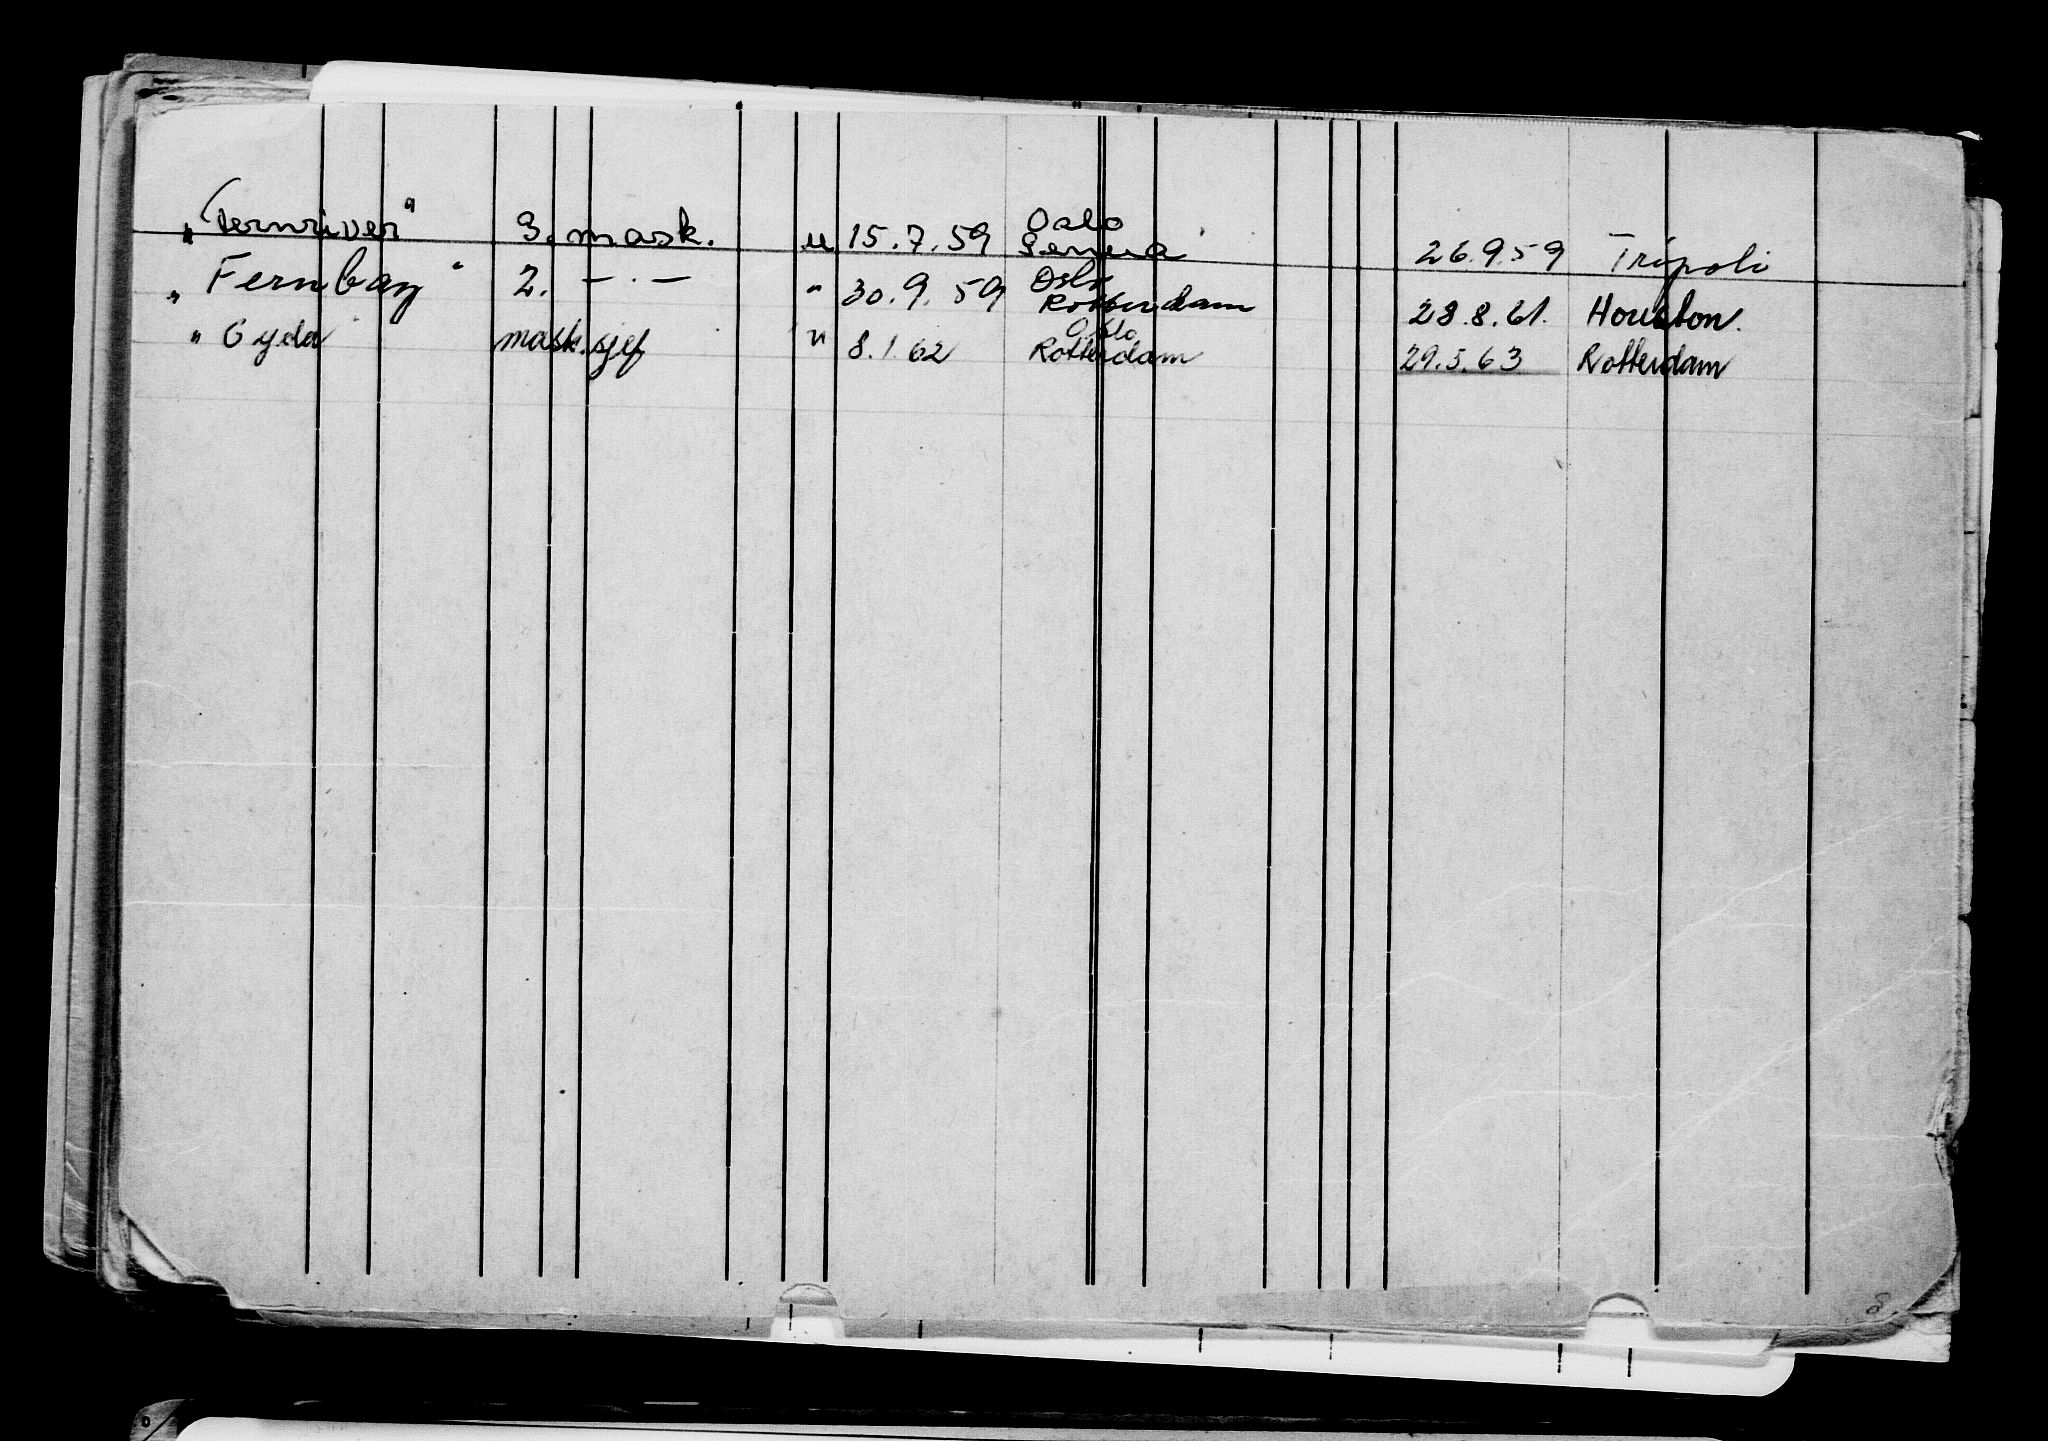 „Fernriver" 3. mask. u 15.7.59 Oslo Genua 26.9.59 Tripoli
„Fernbay" 2. —.— " 30.9.59 Oslo Rotterdam 28.8.61. Houston.
" Gyda mask.sjef u 8.1.62 Oslo Rotterdam 29.5.63 Rotterdam
8.